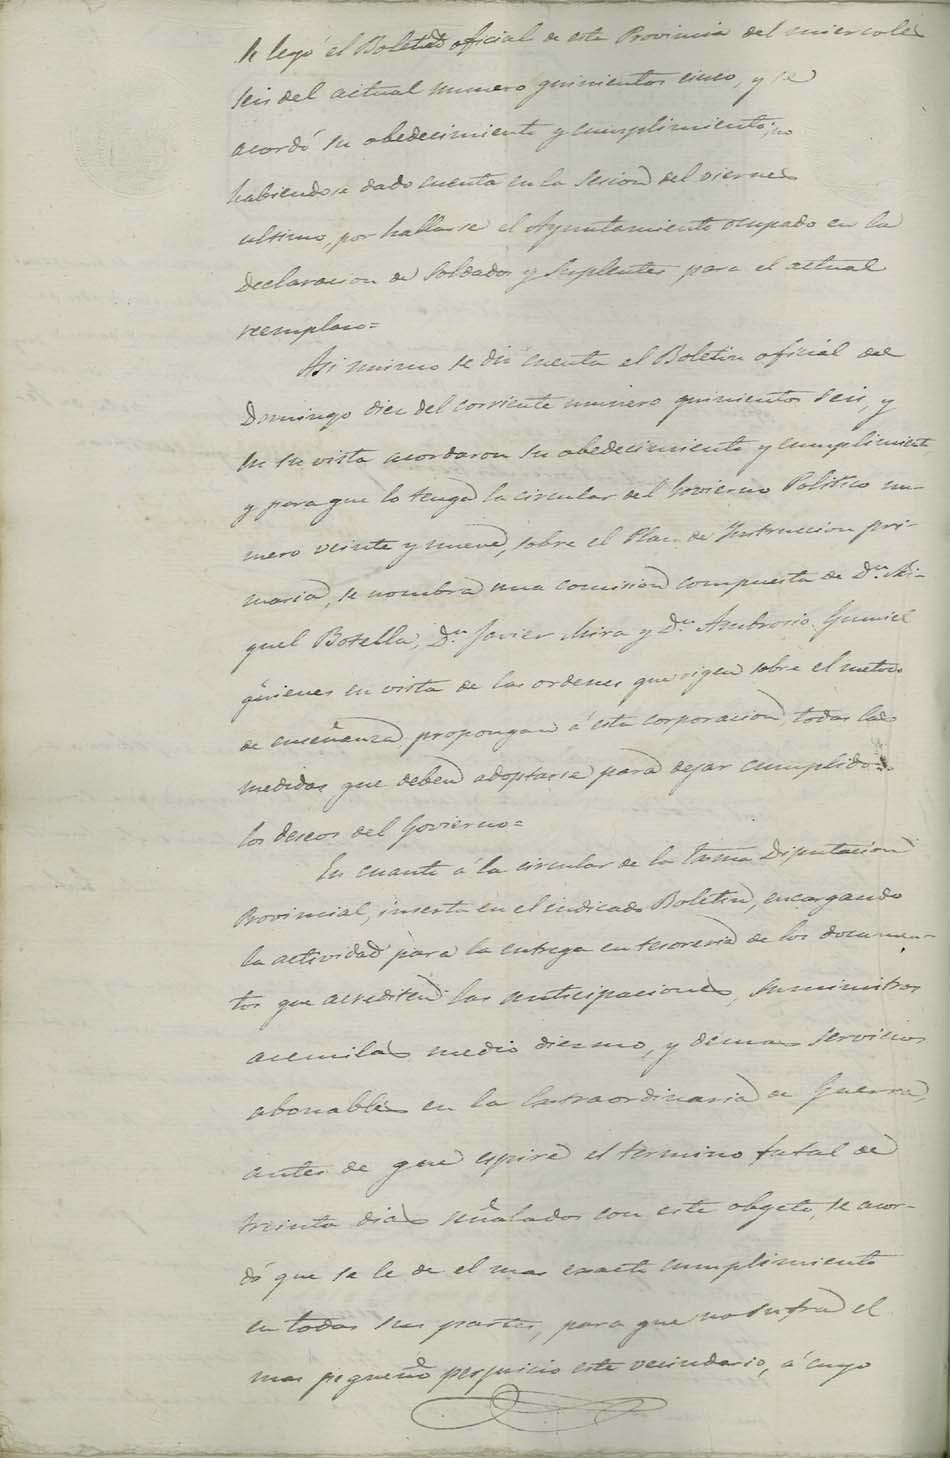 Se leyó el Boletin oficial de esta Provincia del miercoles
seis del actual numero quinientos cinco, y se
acordó su obedecimiento y cumplimiento; no
habiendose dado cuenta en la sesion del viernes
ultimo, por hallarse el Ayuntamiento ocupado en la
declaracion de soldados y suplentes para el actual
reemplazo=
Asi mismo se dió cuenta el Boletin oficial del
Domingo diez del corriente numero quinientos seis, y
en su vista acordaron su obedecimiento y cumplimiento,
y para que lo tenga la circular del Govierno Politico nu-
mero veinte y nueve, sobre el Plan de Instruccion pri-
maria, se nombra una comision compuesta de Dn. Mi-
guel Botella, Dn. Javier Mira y Dn. Ambrosio Gumiel
quienes en vista de las ordenes que rigen sobre el metodo
de enseñanza propongan á esta corporacion, todas las
medidas que deben adoptarse para dejar cumplidos
los deseos del Govierno=
En cuanto á la circular de la Exma Diputacion
Provincial, inserta en el indicado Boletin, encargando
la actividad para la entrega en tesoreria de los documen-
tos que acrediten las anticipaciones, suministros
acemilas medio diezmo, y demas servicios
abonables en la Extraordinaria de Guerra,
antes de que espire el termino fatal de
treinta dias señalados con este obgeto, se acor-
dó que se le de el mas exacto cumplimiento
en todas sus partes, para que no sufra el
mas pequeño perjuicio este vecindario, á cuyo